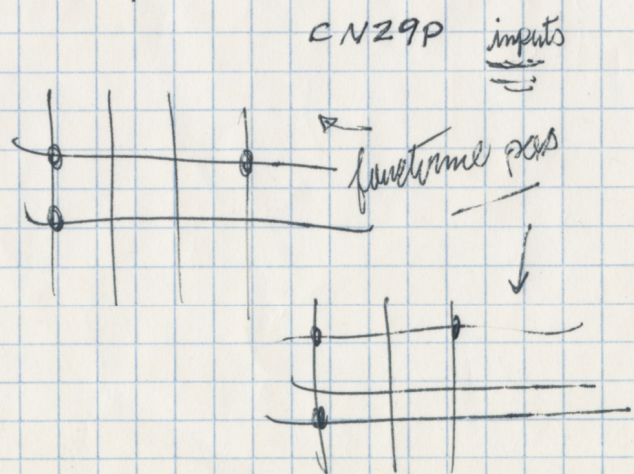 CN29P inputs
fonctionne pas